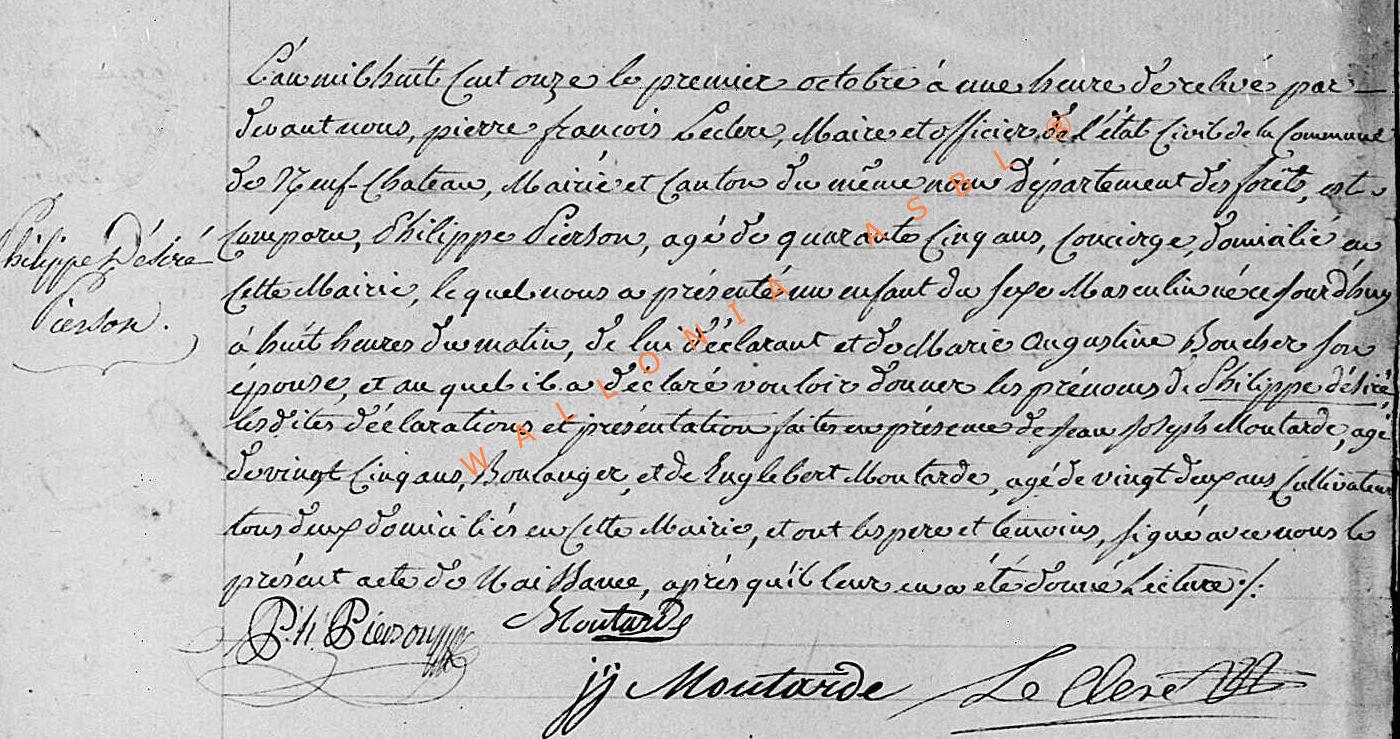 L'an mil huit Cent onze le premier octobre à une heure de relevé par
devant nous, pierre françois Leclerc, Maire et officier de l'état Civil de la Commune
de Neuf-Chateau, Mairie et Canton du même nom département des forêts, est
Comparu, Philippe Pierson, agé de quarante Cinq ans, Concierge, domicilié en
Cette Mairie, le quel nous a présenté un enfant du sexe Masculin né ce jourd'huy
à huit heures du matin, de lui déclarant et de Marie Augustine Boucher son
épouse, et au quel il a déclaré vouloir donner les prénoms de Philippe désiré,
les dites déclarations et présentation faites en présence de Jean Joseph Moutarde, agé
de vingt Cinq ans, Boulanger, et de Englebert Moutarde, agé de vingt deux ans Cultivateur
tous deux domiciliés en Cette Mairie, et ont les pere et témoins, signé avec nous le
présent acte de Naissance, après qu'il leur en a été donné Lecture ./.
Philippe Désiré
Pierson.
Ph Pierson
Moutarde
jj Moutarde
Le Clerc
WALLONIA ASBL ®